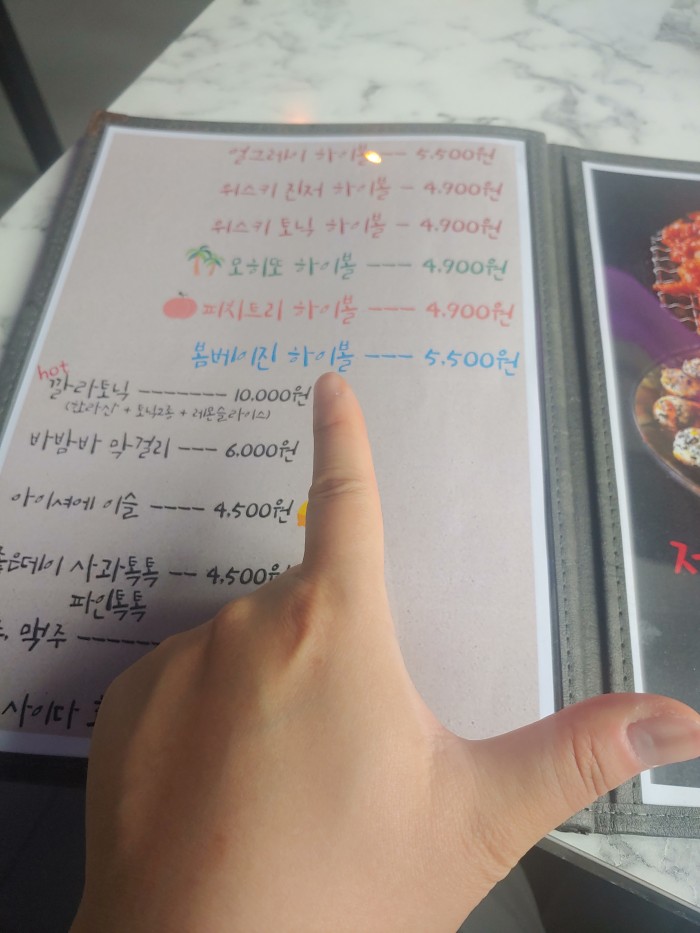 얼그레이 하이볼 --- 5.500원
위스키 진저 하이볼 - 4.900원
위스키 토닉 하이볼 - 4.900원
오히또 하이볼 --- 4.900원
피치트리 하이볼 --- 4.900원
봄베이진 하이볼 --- 5.500원
hot
깔라토닉 ------- 10.000원
(깔라신 + 토닉2종 + 레몬슬라이스)
바밤바 막걸리 --- 6.000원
아이셔에 이슬 ---- 4.500원
좋은데이 사과톡톡 -- 4.500원
파인톡톡
맥주 ------
사이다